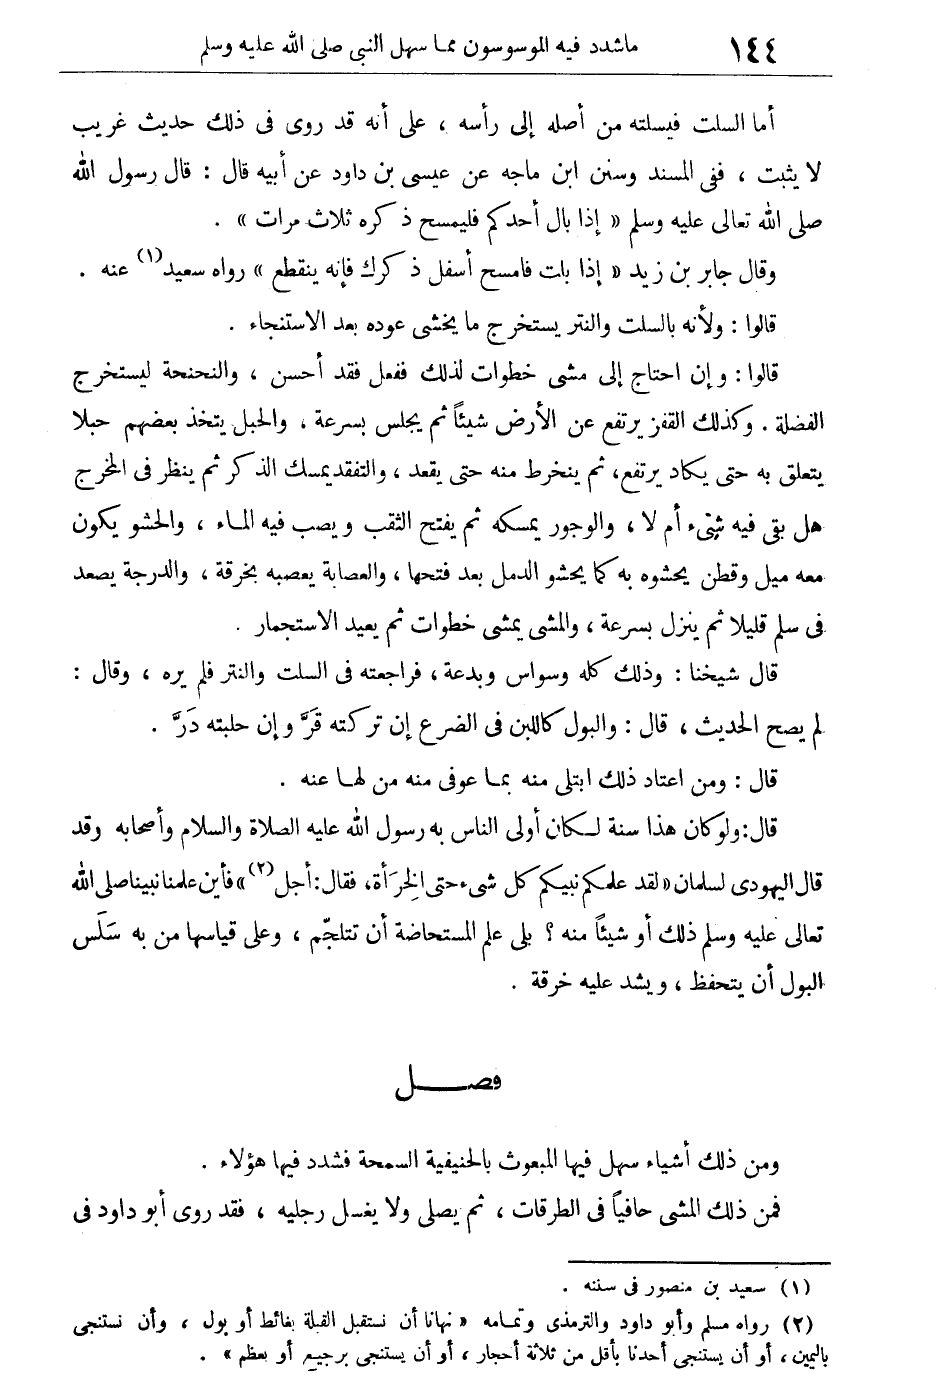 ١٤٤ ماشدد فيه الموسوسون مما سهل النبى صلى الله عليه وسلم
أما السلت فيسلته من أصله إلى رأسه ، على أنه قد روى فى ذلك حديث غريب
لا يثبت ، ففى المسند وسنن ابن ماجه عن عيسى بن داود عن أبيه قال : قال رسول الله
صلى الله تعالى عليه وسلم « إذا بال أحدكم فليمسح ذكره ثلاث مرات » .
وقال جابر بن زيد « إذا بلت فامسح أسفل ذكرك فإنه ينقطع » رواه سعيد(١) عنه .
قالوا : ولأنه بالسلت والنتر يستخرج ما يخشى عوده بعد الاستنجاء .
قالوا : وإن احتاج إلى مشى خطوات لذلك ففعل فقد أحسن ، والنحنحة ليستخرج
الفضلة . وكذلك القفز يرتفع عن الأرض شيئاً ثم يجلس بسرعة ، والحبل يتخذ بعضهم حبلا
يتعلق به حتى يكاد يرتفع، ثم ينخرط منه حتى يقعد ، والتفقد يمسك الذكر ثم ينظر فى المخرج
هل بقى فيه شىء أم لا ، والوجور يمسكه ثم يفتح الثقب ويصب فيه الماء ، والحشو يكون
معه ميل وقطن يحشوه به كما يحشو الدمل بعد فتحها ، والعصابة يعصبه بخرقة ، والدرجة يصعد
فى سلم قليلا ثم ينزل بسرعة ، والمشى يمشى خطوات ثم يعيد الاستجمار .
قال شيخنا : وذلك كله وسواس وبدعة ، فراجعته فى السلت والنتر فلم يره ، وقال :
لم يصح الحديث ، قال : والبول كاللبن فى الضرع إن تركته قَرَّ وإن حلبته دَرَّ .
قال : ومن اعتاد ذلك ابتلى منه بما عوفى منه من لها عنه .
قال:ولو كان هذا سنة لكان أولى الناس به رسول الله عليه الصلاة والسلام وأصحابه وقد
قال اليهودى لسلمان «لقد علمكم نبيكم كل شىء حتى الخِرَأة، فقال: أجل(٢)» فأين علمنا نبينا صلى الله
تعالى عليه وسلم ذلك أو شيئاً منه ؟ بلى علم المستحاضة أن تتلجّم ، وعلى قياسها من به سَلَس
البول أن يتحفظ ، ويشد عليه خرقة .
فصل
ومن ذلك أشياء سهل فيها المبعوث بالحنيفية السمحة فشدد فيها هؤلاء .
فمن ذلك المشى حافياً فى الطرقات ، ثم يصلى ولا يغسل رجليه ، فقد روى أبو داود فى
(١) سعيد بن منصور فى سننه .
(٢) رواه مسلم وأبو داود والترمذى وتمامه « نهانا أن نستقبل القبلة بغائط أو بول ، وأن نستنجى
باليمين ، أو أن يستنجى أحدنا بأقل من ثلاثة أحجار ، أو أن يستنجى برجيع أو بعظم » .